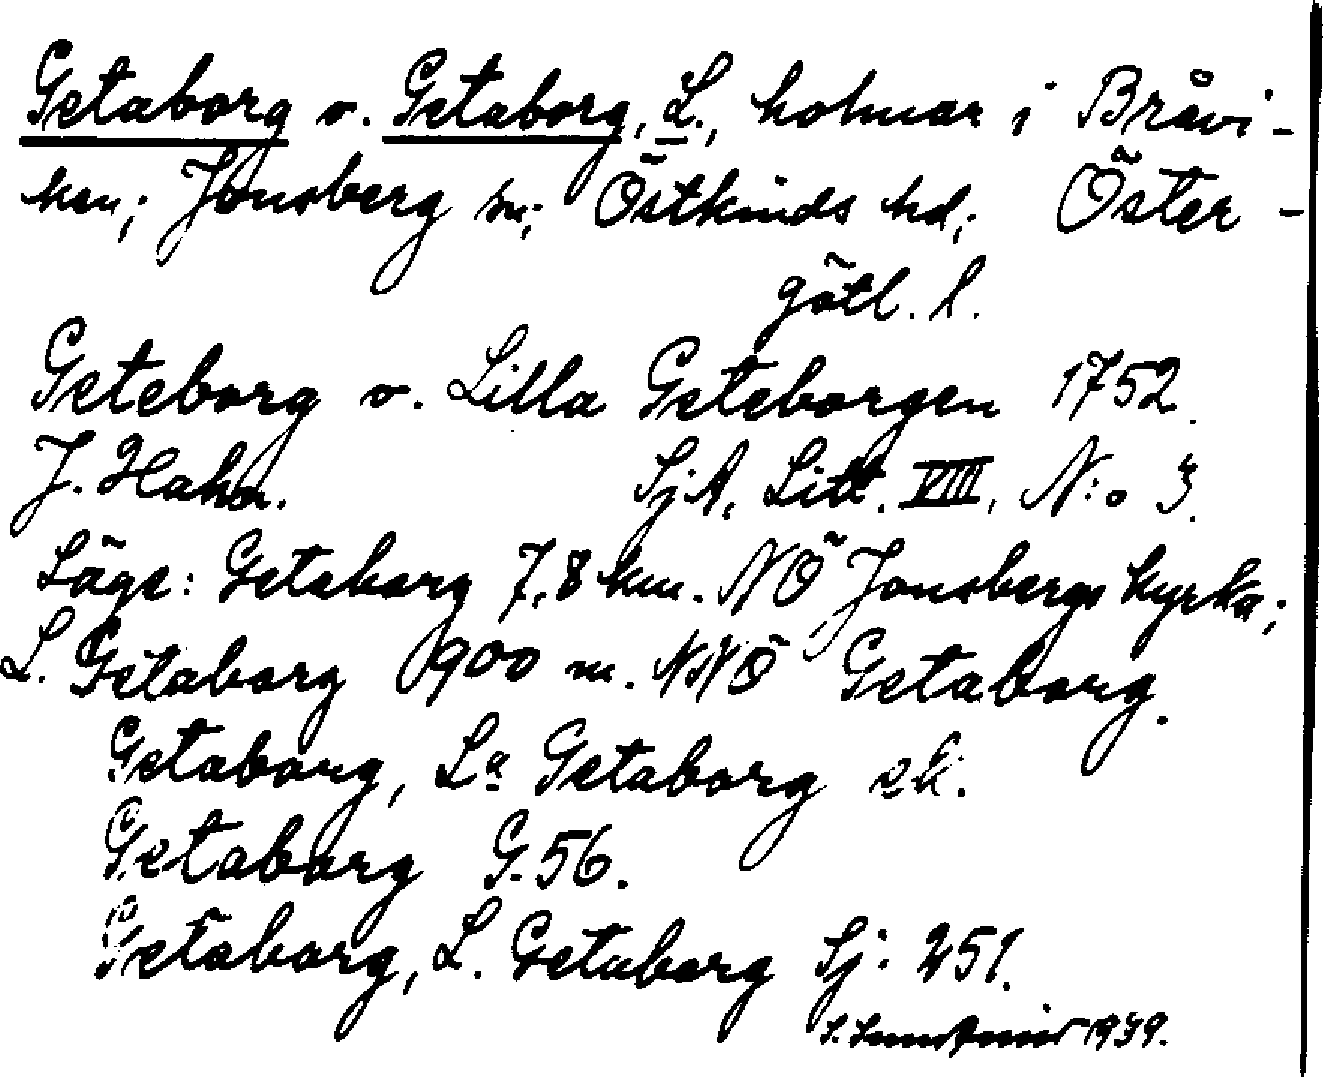 Getaborg o. Getaborg, L., holmar i Bråvi-
ken; Jonsberg sn; Östkinds hd; Öster-
götl. l.
Geteborg o. Lilla Geteborgen 1752.
J. Hahn. SjA, Litt. VIII, N:o 3.
Läge: Getaborg 7,8 km. NÖ Jonsbergs kyrka;
L. Getaborg 900 m. NNÖ Getaborg.
Getaborg, La Getaborg ek.
Getaborg G. 56.
Getaborg, L. Getaborg Sj: 251.
1939.